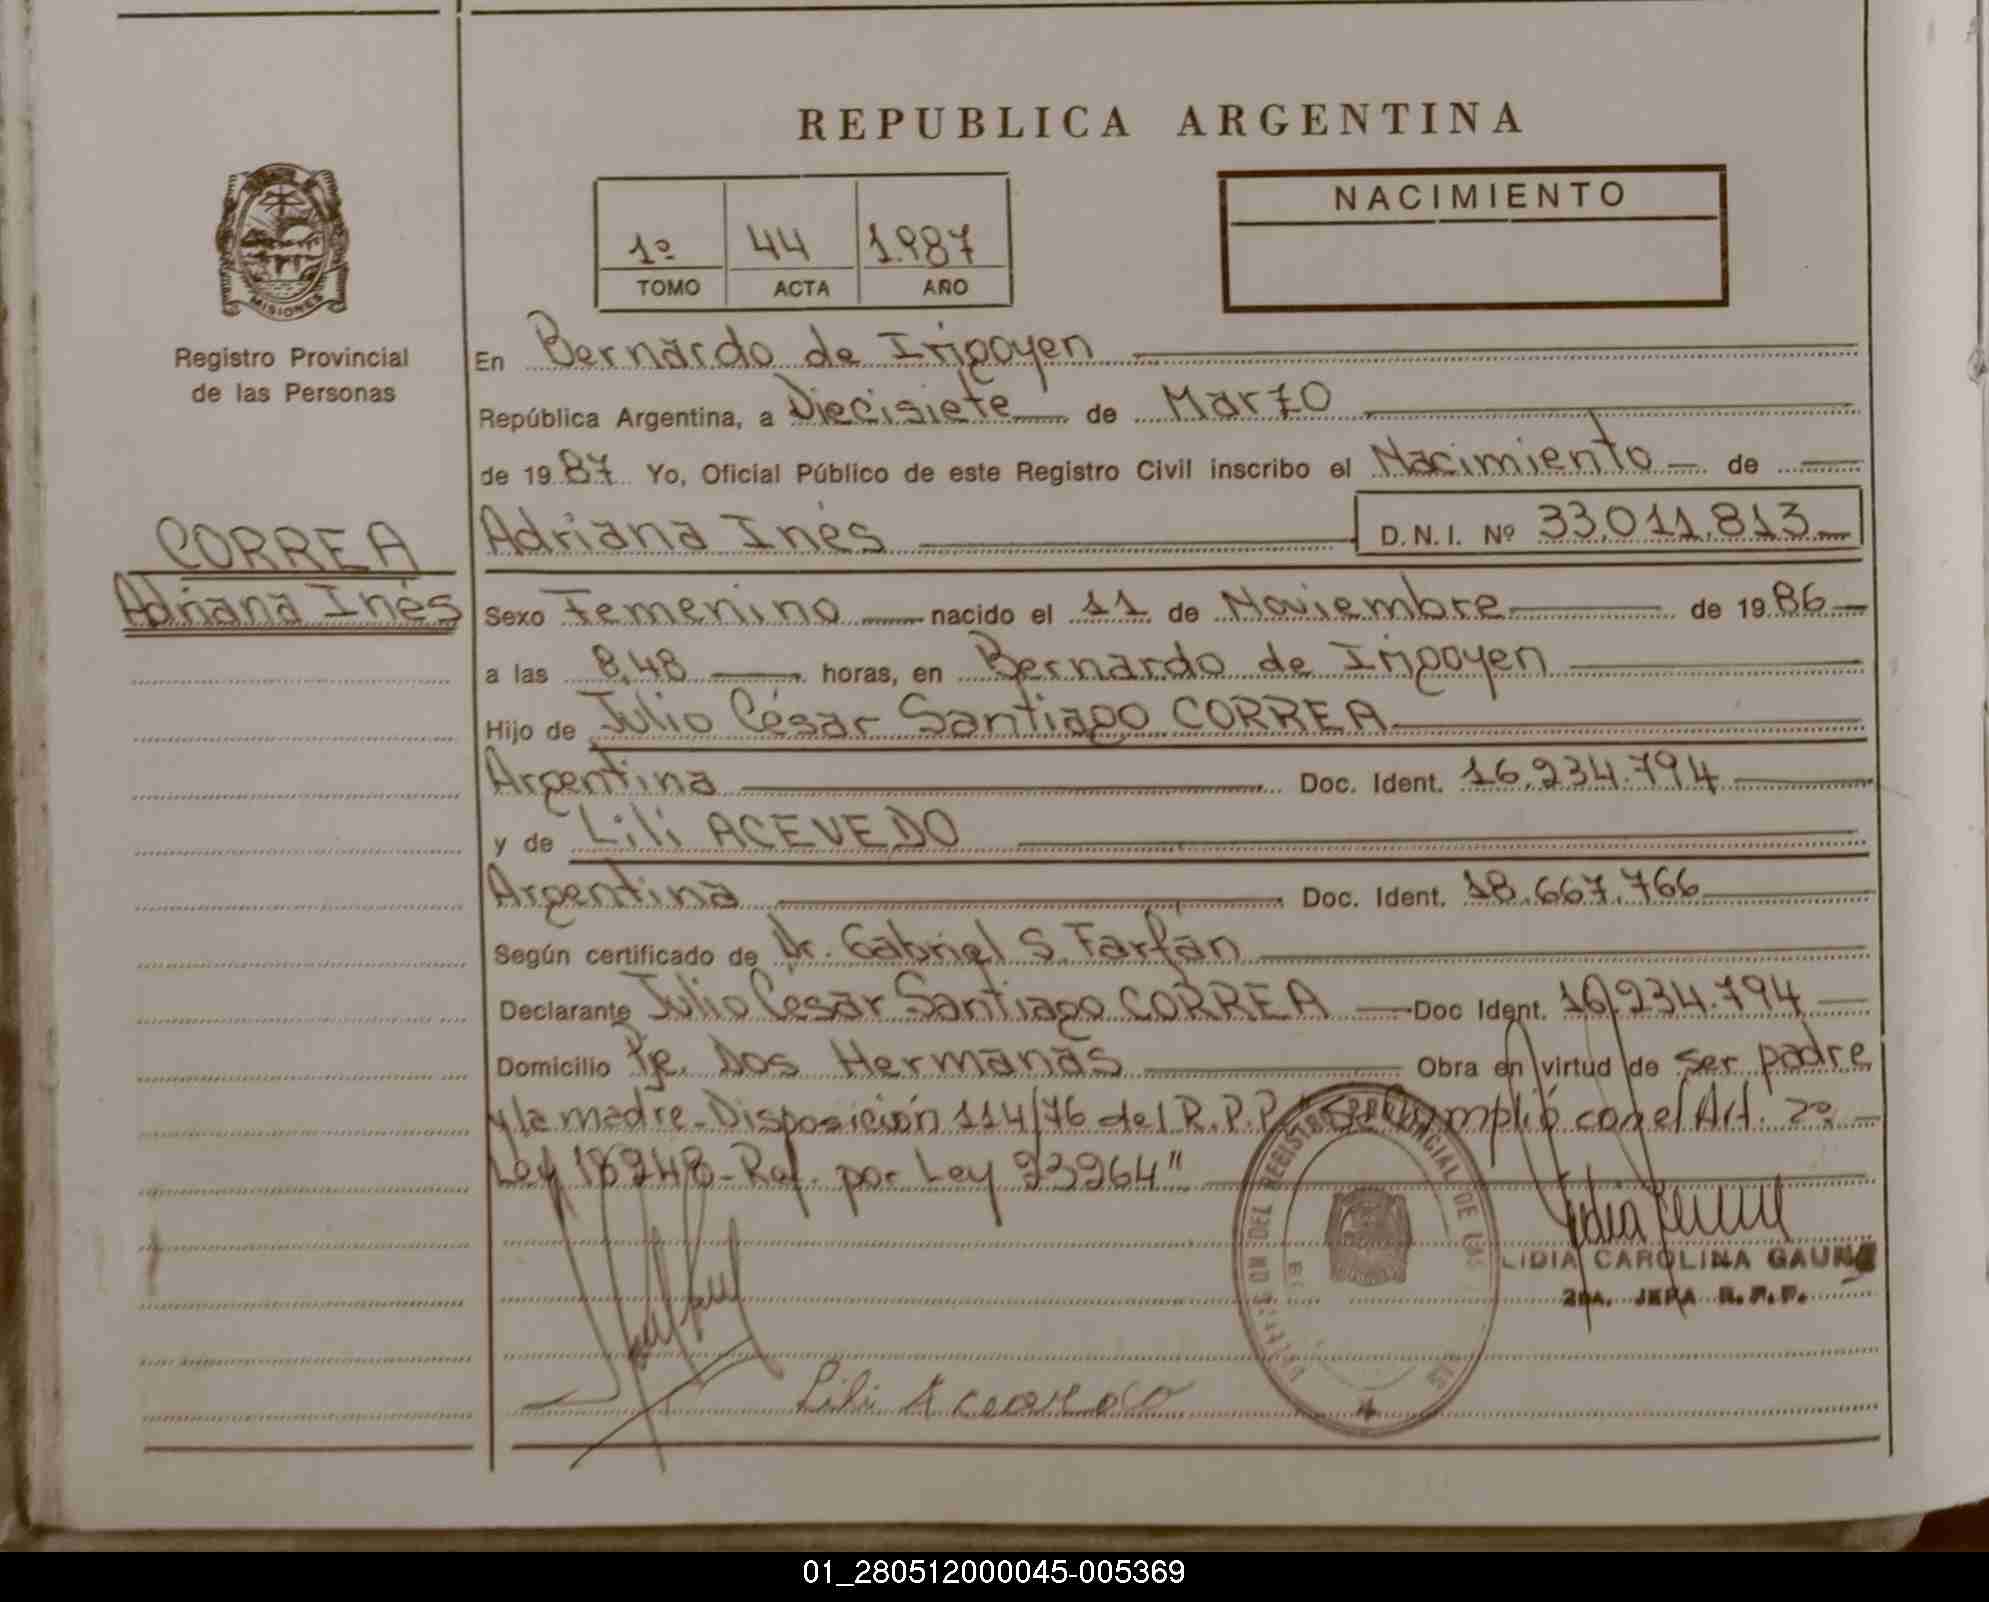 REPUBLICA ARGENTINA
NACIMIENTO
1º 44 1.987
TOMO ACTA AÑO
MISIONES
Registro Provincial
de las Personas
CORREA
Adriana Inés
En Bernardo de Irigoyen
República Argentina, a Diecisiete de Marzo
de 19 87 Yo, Oficial Público de este Registro Civil inscribo el Nacimiento de
Adriana Inés D.N.I. Nº 33.011.813
Sexo Femenino nacido el 11 de Noviembre de 19 86
a las 8,48 horas, en Bernardo de Irigoyen
Hijo de Julio César Santiago CORREA
Argentina Doc. Ident. 16.234.794
y de Lili ACEVEDO
Argentina Doc. Ident. 18.667.766
Según certificado de Dr. Gabriel S. Farfán
Declarante Julio César Santiago CORREA Doc Ident. 16.234.794
Domicilio Pje. Dos Hermanas Obra en virtud de ser padre
y la madre - Disposición 114/76 del R.P.P. "Se cumplió con el Art. 2º
Ley 18248 - Ref. por Ley 23264"
LIDIA CAROLINA GAUNA
2DA. JEFA R.P.P.
Lili Acevedo
01_280512000045-005369